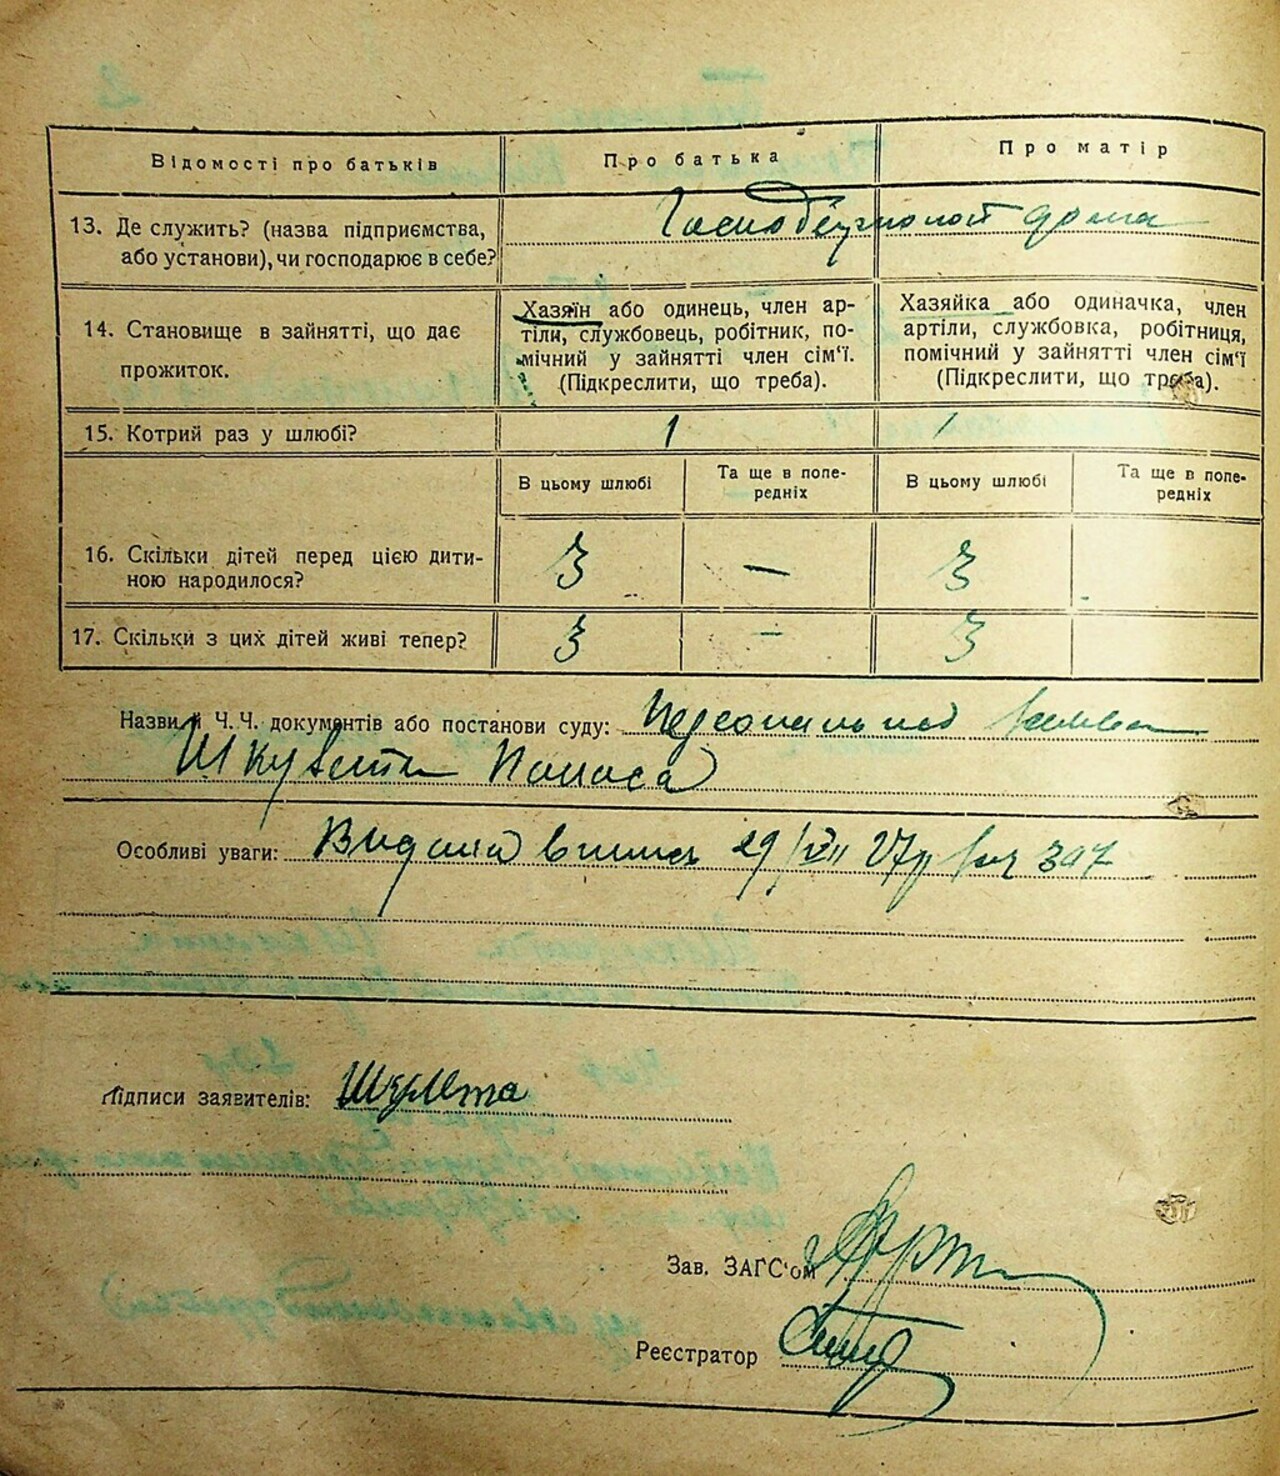 Відомості про батьків
Про батька
Про матір
13. Де служить? (назва підприємства,
або установи), чи господарює в себе?
дома
14. Становище в зайнятті, що дає
прожиток.
Хазяїн або одинець, член ар-
тіли, службовець, робітник, по-
мічний у зайнятті член сім'ї.
(Підкреслити, що треба).
Хазяйка або одиначка, член
артіли, службовка, робітниця,
помічний у зайнятті член сім'ї
(Підкреслити, що треба).
15. Котрий раз у шлюбі?
1
1
В цьому шлюбі
Та ще в попе-
редніх
В цьому шлюбі
Та ще в попе-
редніх
16. Скільки дітей перед цією дити-
ною народилося?
3
—
3
17. Скільки з цих дітей живі тепер?
3
—
3
Назви й Ч. Ч. документів або постанови суду:
Панаса
Особливі уваги: 29/VII 27р
Підписи заявителів:
Зав. ЗАГС'ом
Реєстратор